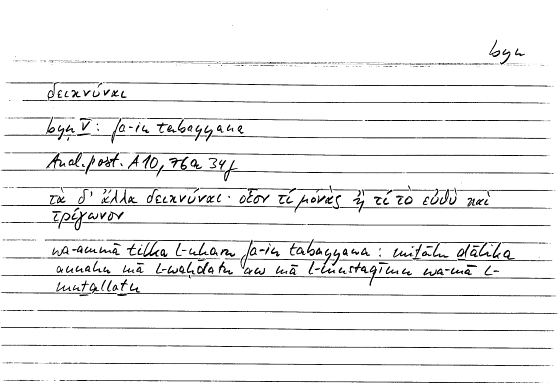 byn
δεικνύναι
byn V: fa-in tabayyana
Anal. post. A 10, 76a 34f
τὰ δ' ἄλλα δεικνύναι· οἷον τί μονὰς ἢ τί τὸ εὐθὺ καὶ
τρίγωνον
wa-ammā tilka l-uḫaru fa-in tabayyana: miṯālu ḏālika
annahu mā l-waḥdatu aw mā l-mustaqīmu wa-mā l-
muṯallaṯu